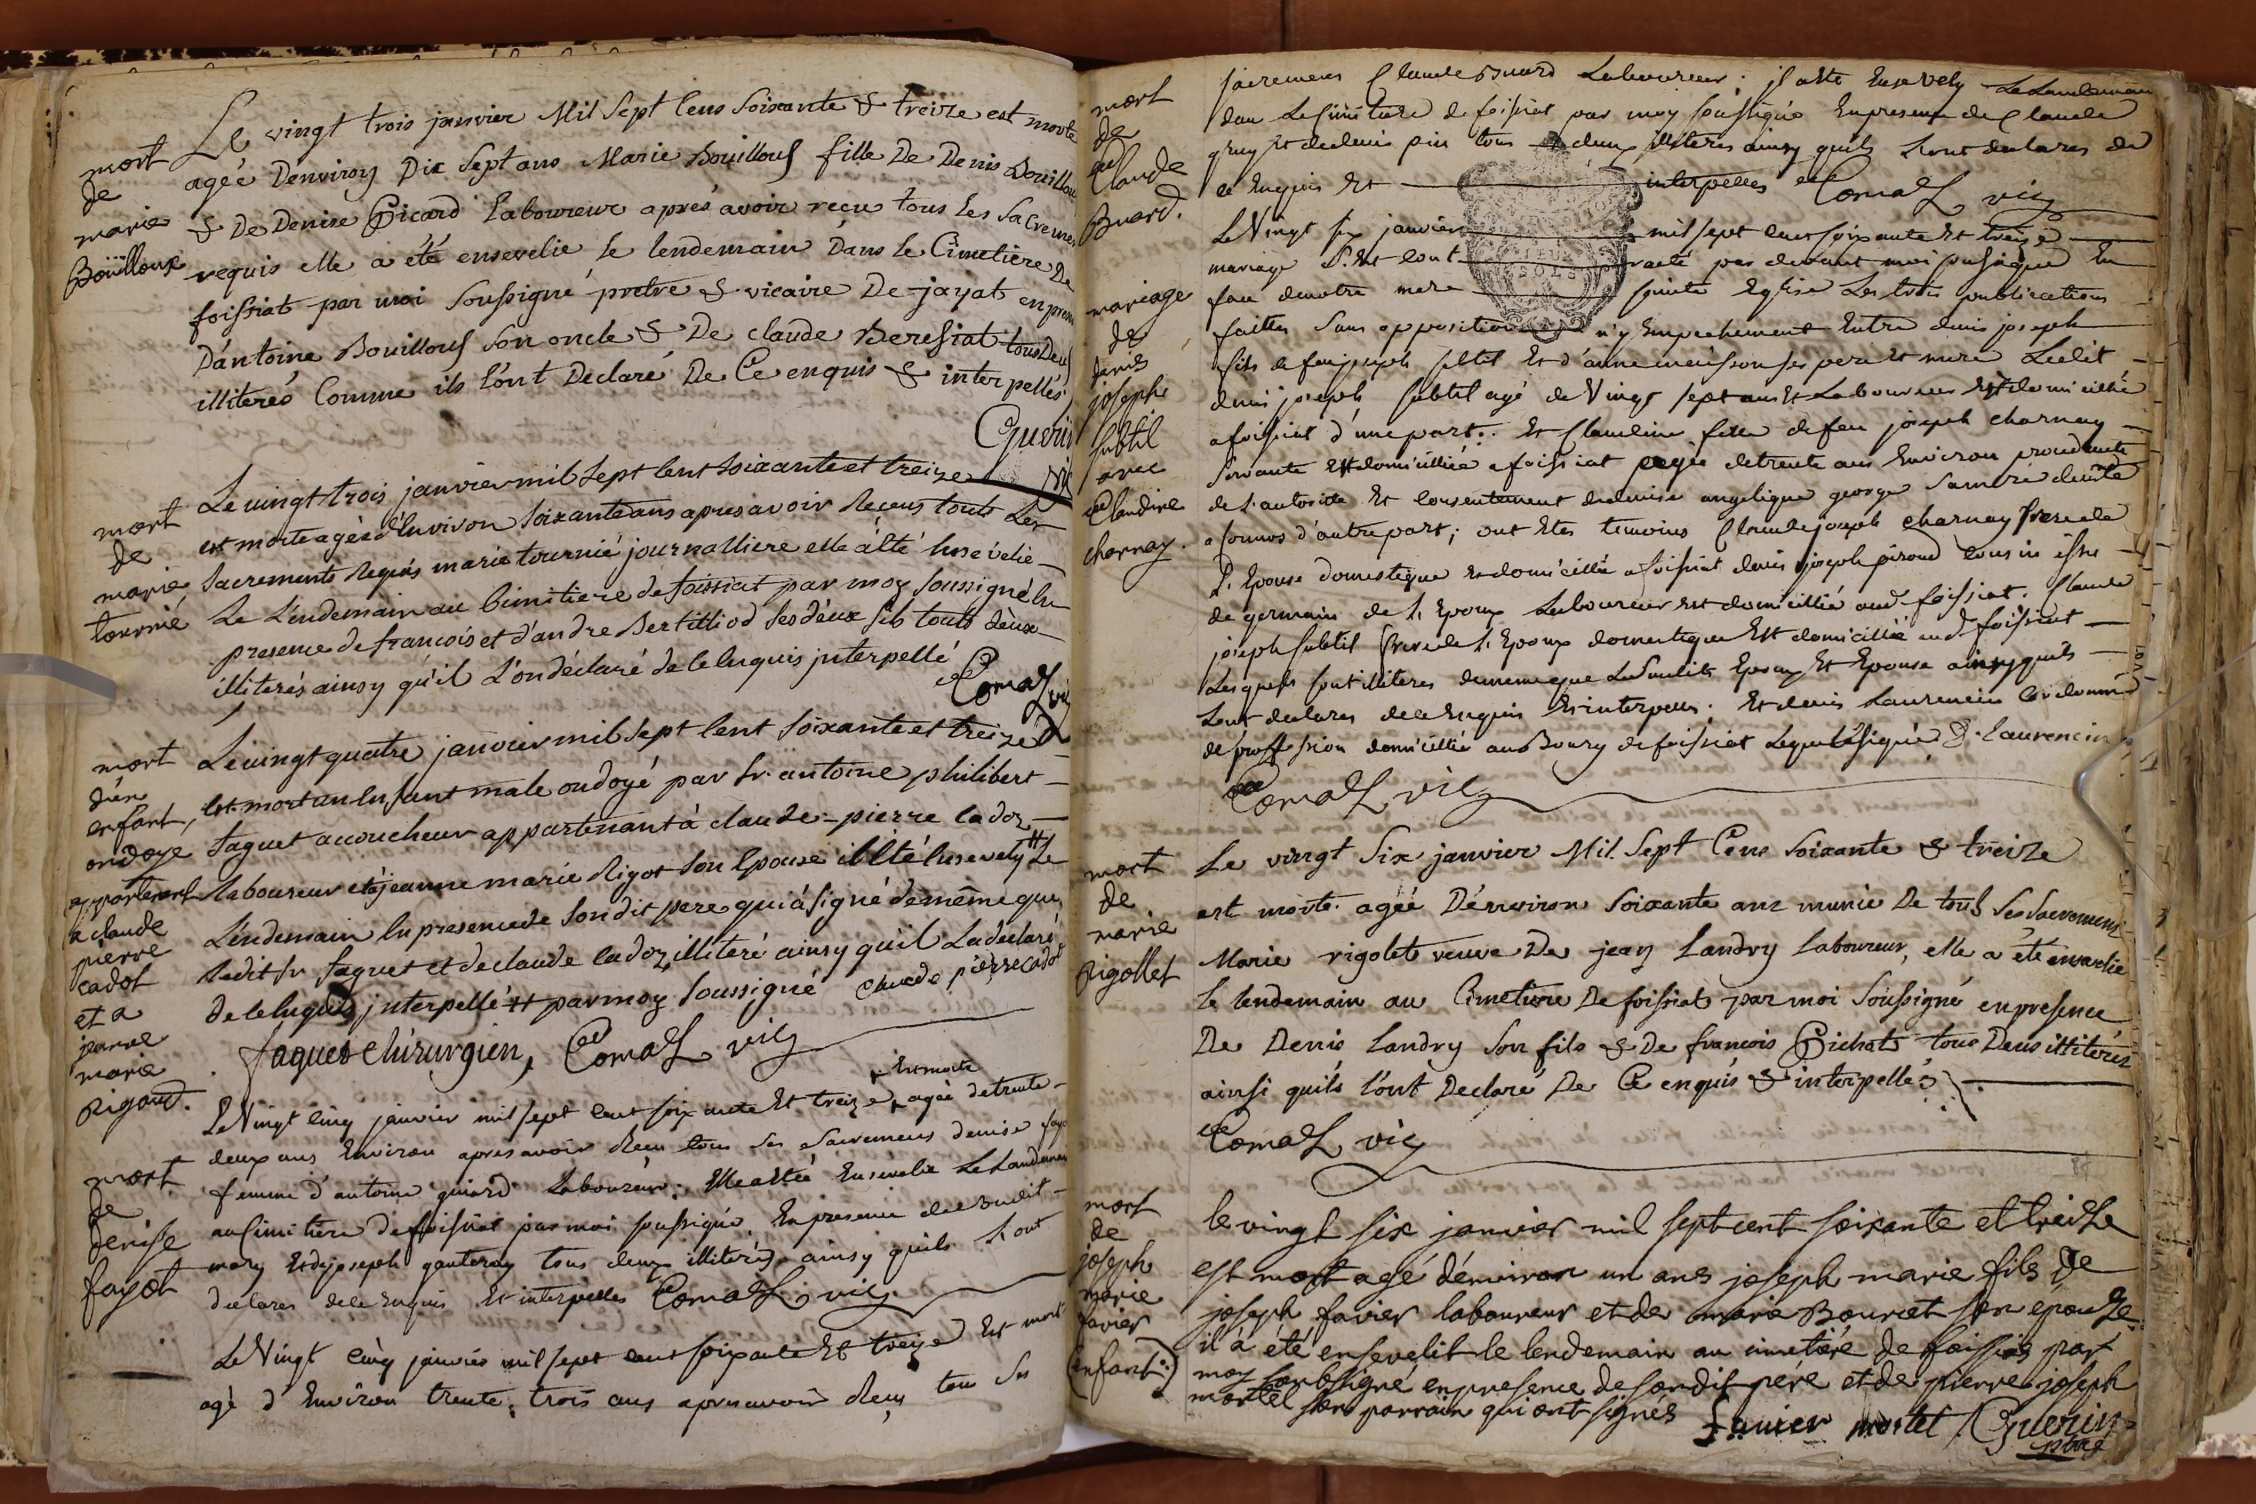 mort
de
marie
Boüilloux
Le vingt trois janvier Mil Sept Cens Soixante & treize est morte
agée D'environ Dix Sept ans Marie Bouilloux fille De Denis Bouilloux
& De Denise Picard Laboureur aprés avoir reçu tous les Sacremens
requis elle a été ensevelie le lendemain Dans le Cimetiere De
foissiat par moi Soussigné prêtre & vicaire De jayat en presence
D'antoine Bouilloux Son oncle & De claude Beresiat tous Deux
illiterés Comme ils l'ont Declaré De Ce enquis & interpellés
Guerin
vic
mort
de
marie
tournié
Le vingt trois janvier mil sept cent soixante et treize
est morte agée d'Environ soixante ans apres avoir Reçeus touts Les
Sacrements Requis marie tournié journalliere elle a été Ensevelie
Le Lendemain au Cimitiere de foissiat par moy Soussigné En
presence de francois et d'andre Bertilliod ses deux fils touts deux
illiterés ainsy qu'il L'on déclaré de Ce Enquis interpellé
Comas vic
mort
d'un
enfant
ondoye
appartenant
a claude
pierre
cadot
et a
jeanne
marie
Rigaud.
Le vingt quatre janvier mil sept cent soixante et treize
Est mort un Enfant male ondoyé par Sr. antoine philibert
faguet accoucheur appartenant à claude-pierre Cadoz
Laboureur et à jeanne marie Rigot son Epouse il a été Ensevely # Le
Lendemain En presence de son dit pere qui a signé de même que
Ledit Sr faguet et de claude Cadoz illiteré ainsy qu'il La déclaré
de Ce Enquis interpellé # par moy Soussigné claude pierre cadot
faguet chirurgien, Comas vic
mort
de
denise
fayot
+ Est morte
Le Vingt Cinq janvier mil sept cent soixante Et treize + agée de trente
deux ans Environ apres avoir Recu tous Ses Sacremens denise fayot
femme d'antoine guiard Laboureur; Elle a Eté Ensevelie Le Landemain
au Cimitiere de foissiat par moi soussigné En presence de Son dit
mary Et de joseph gauteray tous deux illiterés ainsy quils L'ont
declares de Ce Enquis Et interpelles Comas vic
Le Vingt Cinq janvier mil sept cent soixante Et treize Est mort
agé d'Environ trente trois ans apres avoir Reçu tous Ses
mort
de
Claude
Buard.
sacremens Claude Buard Laboureur; il a été Ensevely Le Landemain
dans Le Cimitiere de foissiat par moy soussigné En presence de Claude
gruy Et de denis pin tous deux illiteres ainsy quils L'ont declares de
Ce Enquis Et interpelles Comas vic
mariage
de
denis
joseph
subtil
avec
Claudine
charnay.
Le Vingt six janvier mil sept cent soixante Et treize
mariage S. Est contracté par devant moi soussigné En
face de notre mere sainte Eglise Les trois publications
faittes Sans opposition n'y Empechement Entre denis joseph
fils de feu joseph subtil Et d'anne meusson ses pere Et mere Ledit
denis joseph subtil agé de Vingt sept ans Et Laboureur Et domicillié
a foissiat d'une part; Et Claudine fille de feu joseph charnay
servante Et domicilliée a foissiat agée de trente ans Environ procedante
de L'autorité Et consentement de denise angelique george sa mere
a fournos d'autre part; ont Etes temoins Claude joseph charnay frere de
L'Epouse domestique Et domicillié a foissiat denis joseph piroud cousin issu
de germain de L'Epoux Laboureur Et domicillié aud. foissiat. Claude
joseph subtil frere de L'Epoux domestique Et domicillié aud foissiat
Lesquels sont illiteres de meme que Lesdits Epoux Et Epouse ainsy quils
L'ont declares de Ce Enquis Et interpelles. Et denis Laurencin Cordonnié
de proffession domicillié au Bourg de foissiat Lequel a signé D. Laurencin
Comas vic
mort
de
marie
Rigollet
Le vingt Six janvier Mil Sept Cens Soixante & treize
est morte agée D'environ Soixante ans munie De tous Ses Sacremens
Marie rigolet veuve De jean Landry Laboureur, elle a été ensevelie
le lendemain au Cimetiere De foissiat par moi Soussigné en presence
De Denis Landry Son fils & De francois Pichat tous Deux illiterés
ainsi quils l'ont Declaré De Ce enquis & interpellés
Comas vic
mort
de
joseph
marie
favier
(enfant)
le vingt six janvier mil sept cent soixante et treize
est mort agé d'environ un ans joseph marie fils de
joseph favier laboureur et de marie Bourcet son épouze
il à été ensevelit le lendemain au cimetiére de foissiat par
moy soubsigné en presence de son dit pére et de pierre joseph
mortel son parrain qui ont signés favier mortel Guerin
ptre